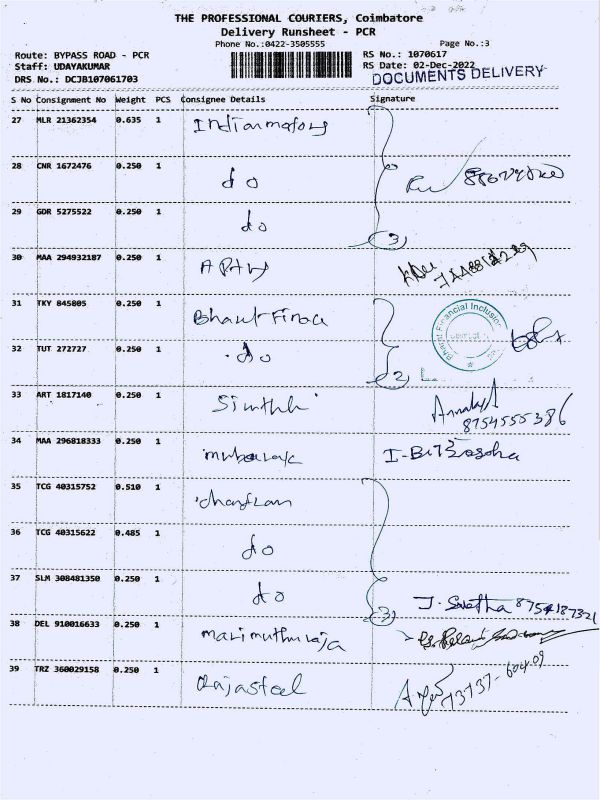 THE PROFESSIONAL COURIERS, Coimbatore
Delivery Runsheet - PCR
Phone No.:0422-3505555
Page No.:3
Route: BYPASS ROAD - PCR
RS No.: 1070617
Staff: UDAYAKUMAR
RS Date: 02-Dec-2022
DRS No.: DCJB107061703
DOCUMENTS DELIVERY
S No Consignment No Weight PCS Consignee Details Signature
27 MLR 21362354 0.635 1 Indian motors
28 CNR 1672476 0.250 1 do
29 GDR 5275522 0.250 1 do
3
30 MAA 294932187 0.250 1
31 TKY 845805 0.250 1 Bharat Finace
Bharat Financial Inclusion
32 TUT 272727 0.250 1 do
2
33 ART 1817140 0.250 1
8754555386
34 MAA 296818333 0.250 1
35 TCG 40315752 0.510 1
36 TCG 40315622 0.485 1 do
37 SLM 308481350 0.250 1 do
3
J. Swetha 8754187321
38 DEL 910016633 0.250 1 marimuthu raja
39 TRZ 360029158 0.250 1 Rajasteel
73737-60409